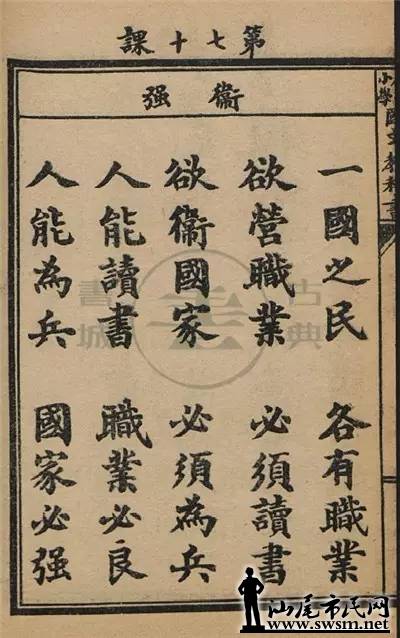 第七十課
衞強
一國之民 各有職業
欲營職業 必須讀書
欲衞國家 必須為兵
人能讀書 職業必良
人能為兵 國家必强
小學國文教科書
古典書城
汕尾市民网
www.swsm.net